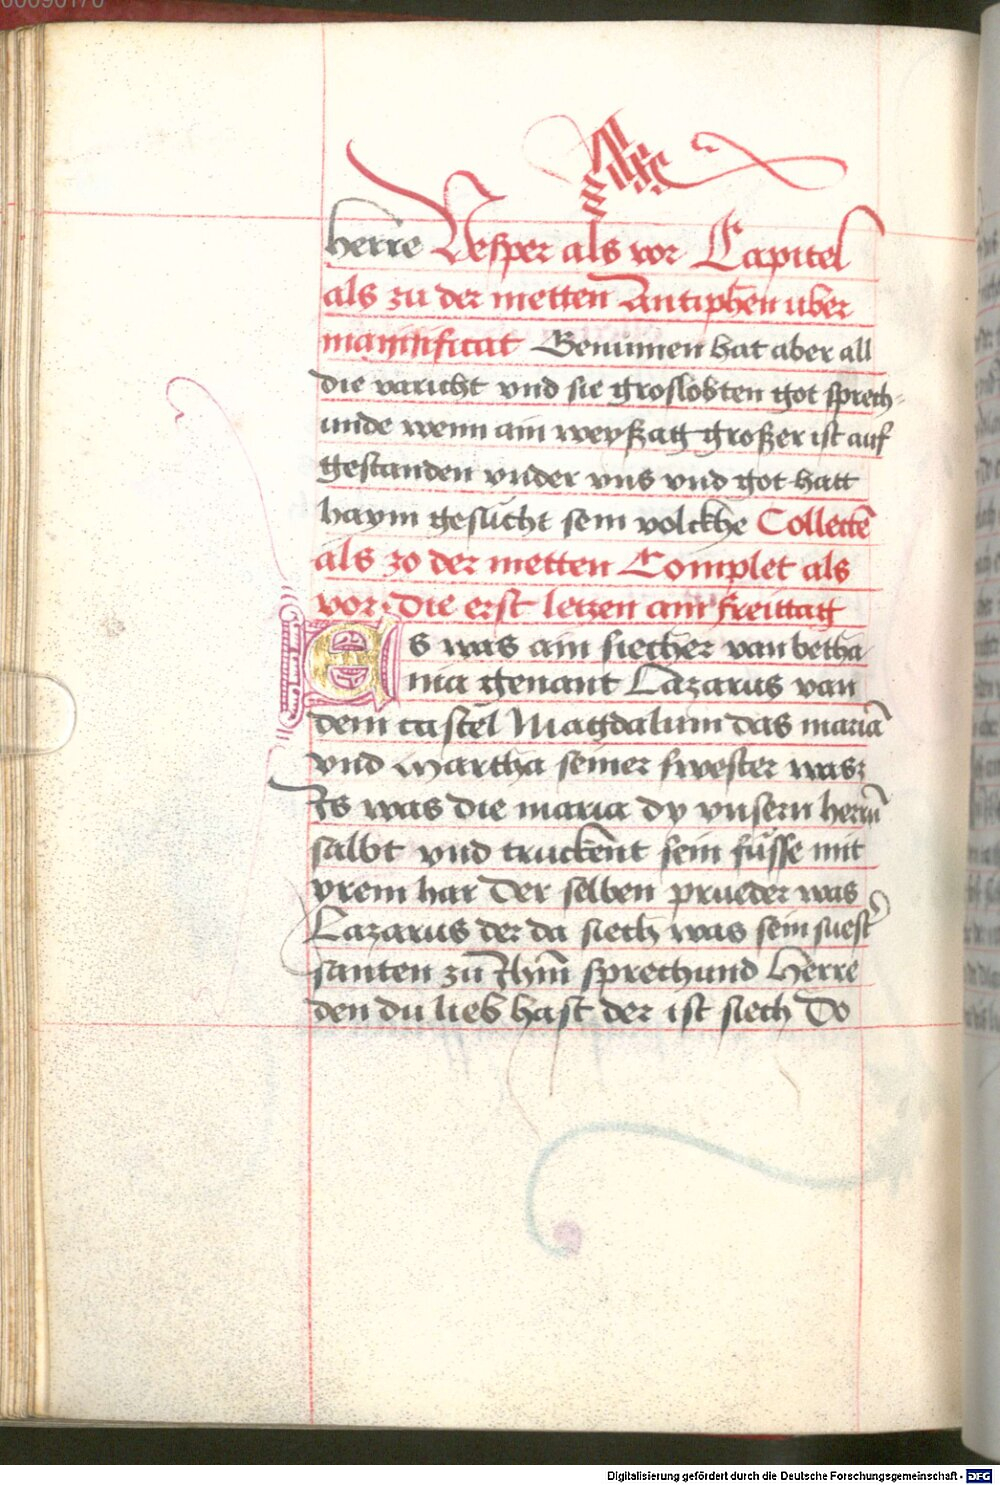 herre Vesper als vor Capitel
als zu der metten Antiphen uber
magnificat Genumen hat aber all
die varicht vnd sie groslobten got sprech-
unde wenn ain weyßag großer ist auf
gestanden vnder vns vnd got hatt
haym gesucht sein volckhe Collectē
als zo der metten Complet als
vor. die erst letzen am freittag
Es was ain siecher van betha
nia genant Lazarus van
dem castel Magdalum das maria
vnd Martha seiner swester was
Es was die maria dy vnsern herrn
salbt vnd truckent sein füsse mit
yrem har Der selben prueder was
Lazarus der da siech was sein suest
santen zu Jhm̄ sprechund Herre
den du lieb hast der ist siech Do
Digitalisierung gefördert durch die Deutsche Forschungsgemeinschaft - DFG